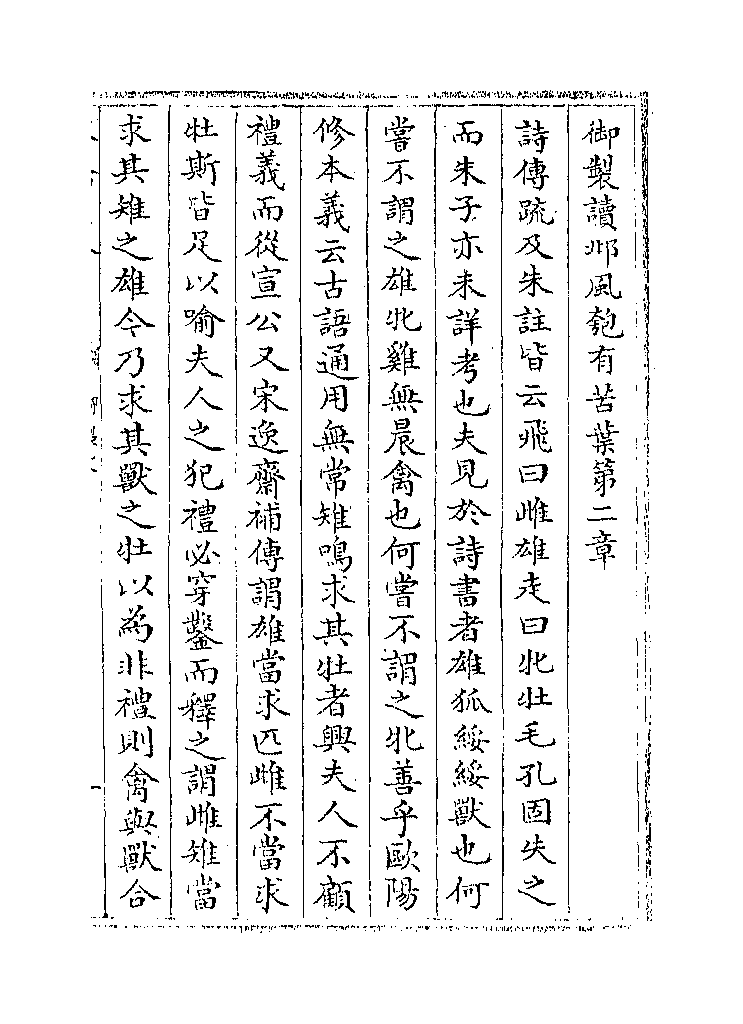 御製讀邶風匏有苦葉第二章
詩傳疏及朱註皆云飛曰雌雄走曰牝牡毛孔固失之
而朱子亦未詳考也夫見於詩書者雄狐綏綏獸也何
嘗不謂之雄牝雞無晨禽也何嘗不謂之牝善乎歐陽
修本義云古語通用無常雉鳴求其牡者興夫人不顧
禮義而從宣公又宋逸齋補傳謂雄當求匹雌不當求
牡斯皆足以喻夫人之犯禮必穿鑿而釋之謂雌雉當
求其雉之雄今乃求其獸之牡以為非禮則禽與獸合